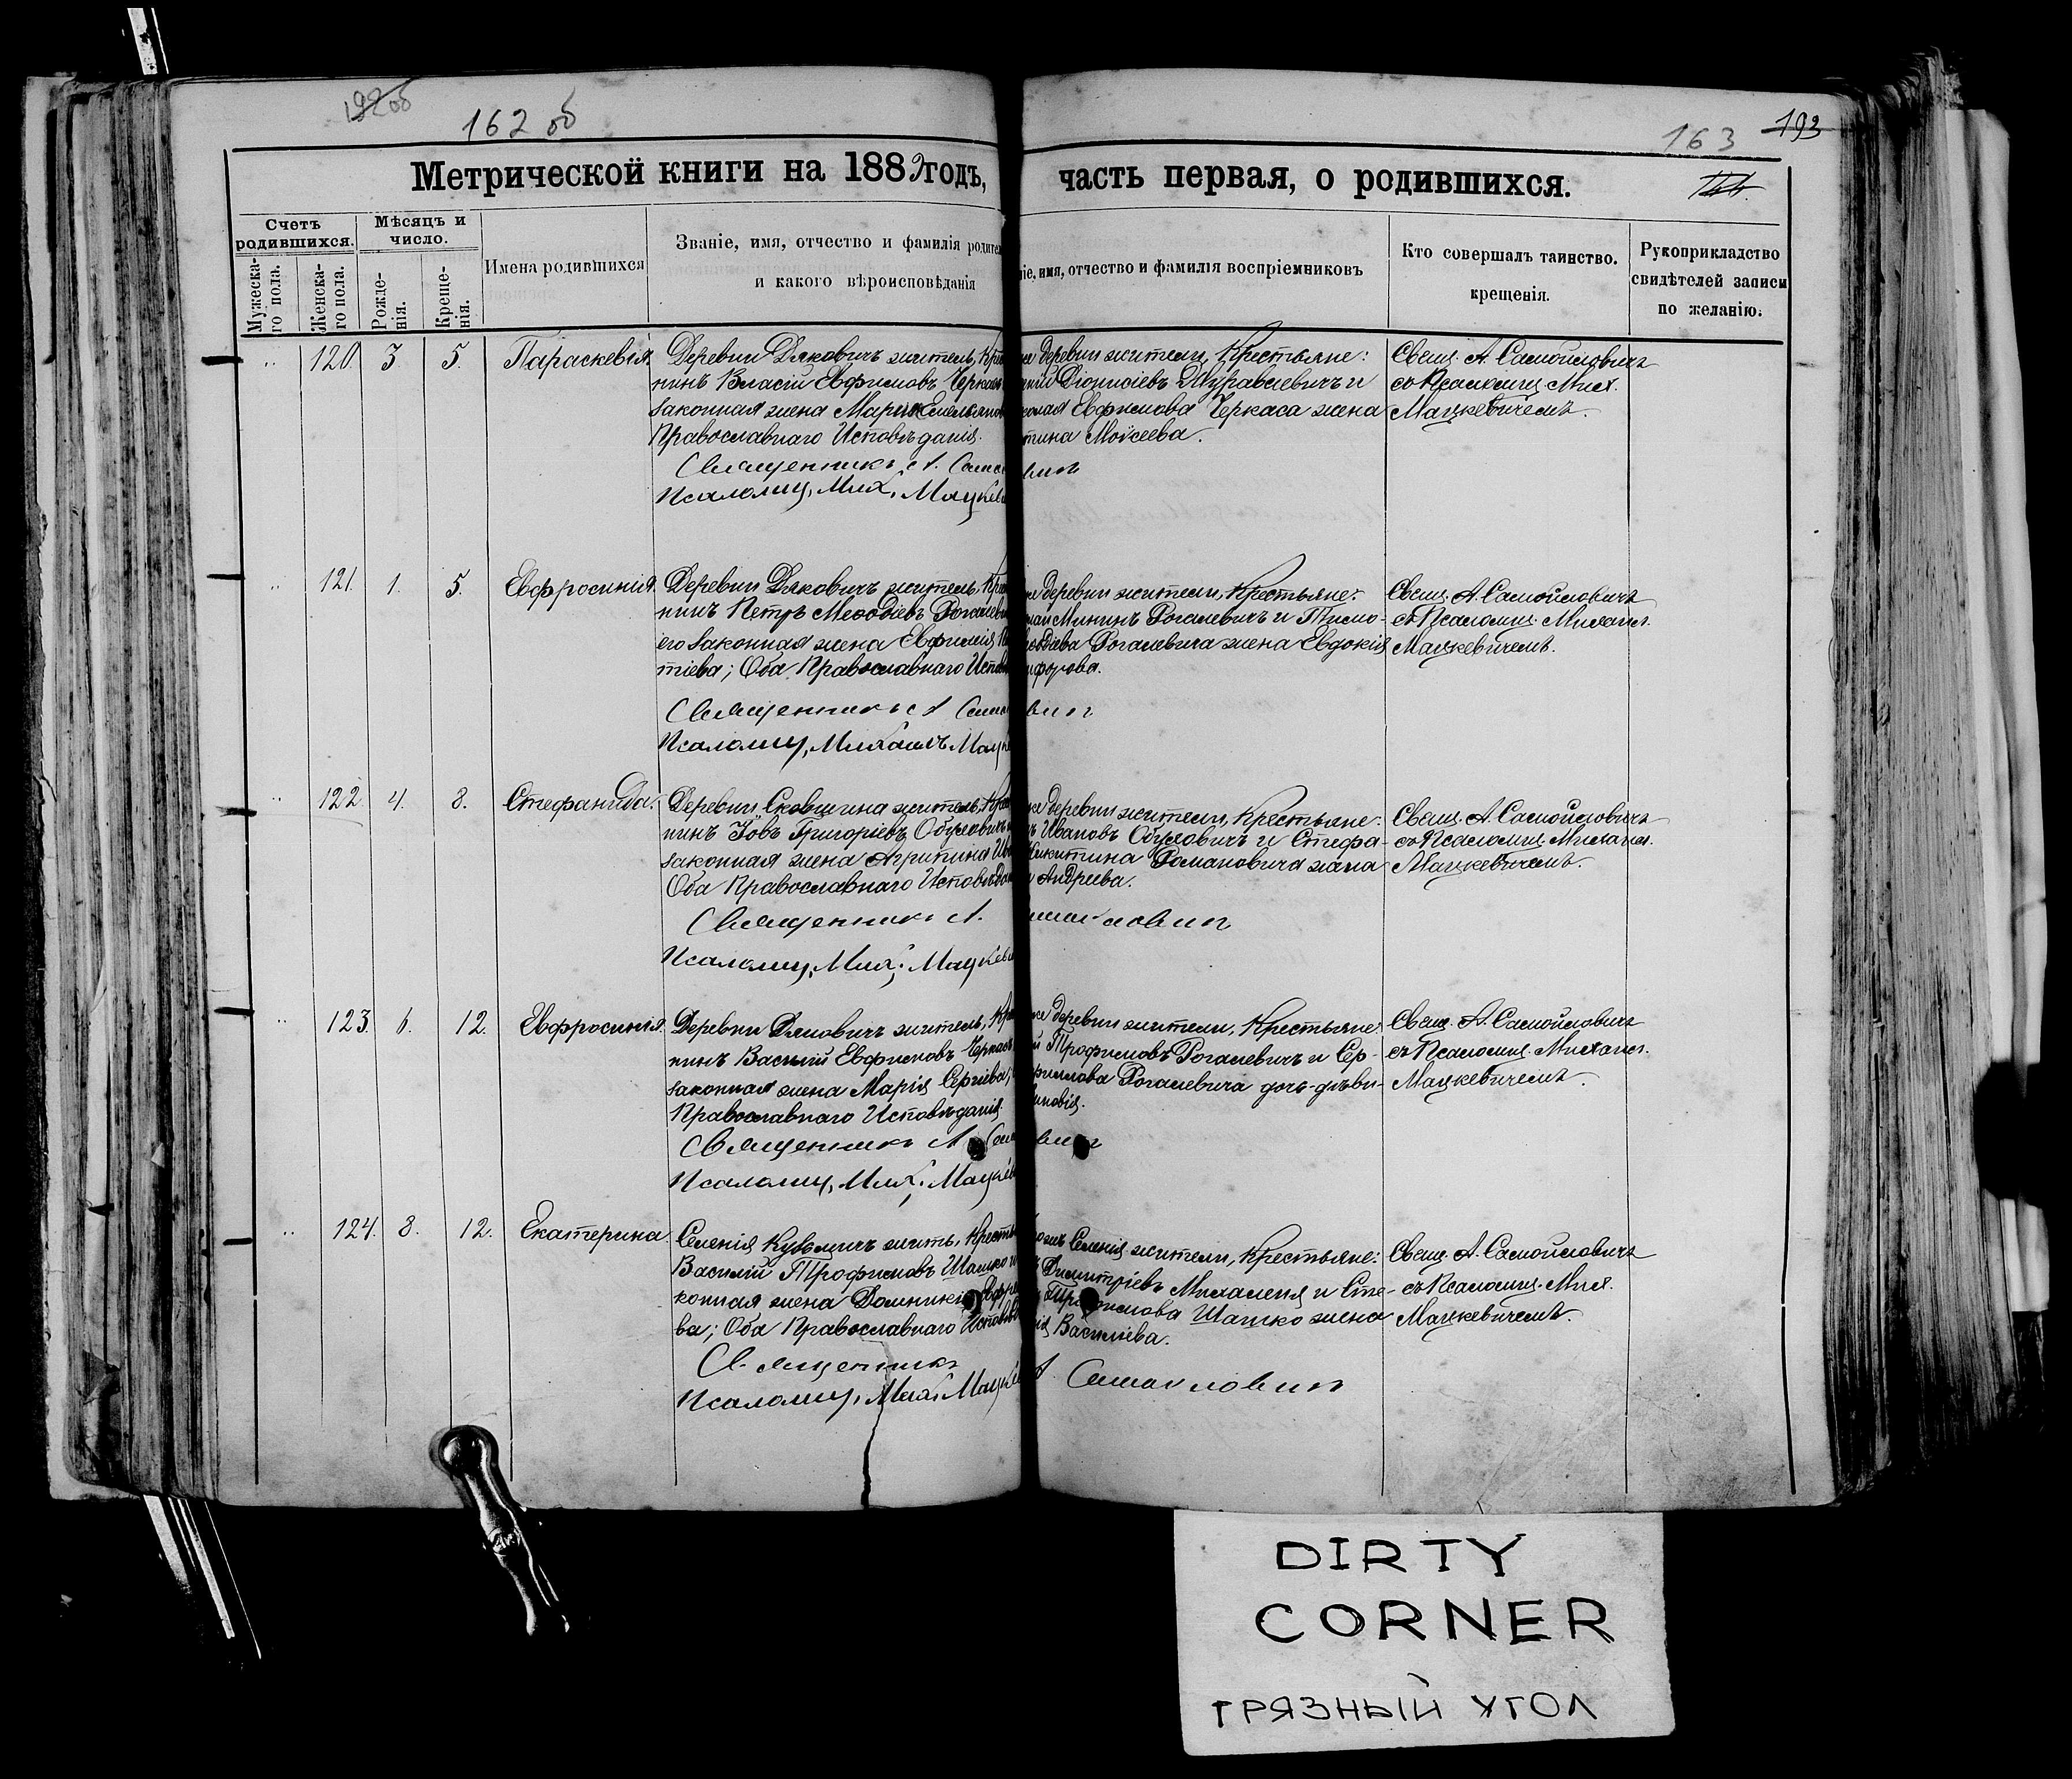 192 об
162 об
163 193
Метрической книги на 1882 годъ, часть первая, о родившихся.
Счетъ родившихся.
Мѣсяцъ и число.
Мужеска-го пола.
Женска-го пола.
Рожде-нія.
Креще-нія.
Имена родившихся
Званіе, имя, отчество и фамилія родител
и какого вѣроисповѣданія
ніе, имя, отчество и фамилія воспріемниковъ
Кто совершалъ таинство.
крещенія.
Рукоприкладство
свидѣтелей записи
по желанію.
120. 3. 5. Параскевія.
Деревни Дяковичъ житель, Кре
нинъ Власій Евфимовъ Черкасъ
законная жена Марія Емельянов
Православнаго Исповѣданія.
Священникъ А. Само
Псаломщ. Мих. Мацкеви
же деревни жители, Крестьяне:
Діонисіевъ Журавлевичъ и
колая Евфимова Черкаса жена
тина Моѵсеева.
вичъ
Свящ. А. Самойловичъ
съ Псаломщ. Мих.
Мацкевичемъ.
121. 1. 5. Евфросинія.
Деревни Дяковичъ житель, Кре
нинъ Петръ Меѳодіевъ Рогалеви
его законная жена Евфимія
тіева; Оба Православнаго Испов
Священникъ А Само
Псаломщ. Михаилъ Мацк
же деревни жители, Крестьяне:
Мининъ Рогалевичъ и Тимо-
ѳодіева Рогалевича жена Евдокія
ифорова.
вичъ
Свящ. А. Самойловичъ
съ Псаломщ. Михаил.
Мацкевичемъ.
122 4. 8. Стефанида.
Деревни Сковшина житель, Кре
нинъ Іовъ Григоріевъ Обуховичъ
законная жена Агрипина Ива
Оба Православнаго Исповѣдан
Священникъ А.
Псаломщ. Мих. Мацкеви
же деревни жители, Крестьяне:
Ивановъ Обуховичъ и Стефа-
Никитина Романовича жена
Андреева.
мойловичъ
Свящ. А. Самойловичъ
съ Псаломщ. Михаил.
Мацкевичемъ.
123. 6. 12. Евфросинія.
Деревни Дяковичъ житель, Кре
нинъ Василій Евфимовъ Черкасъ
законная жена Марія Сергіева;
Православнаго Исповѣданія.
Священникъ А Сам
Псаломщ. Мих. Мацкев
же деревни жители, Крестьяне:
й Трофимовъ Рогалевичъ и Сер-
Рогалевича дочь-дѣви-
иновія.
вичъ
Свящ. А. Самойловичъ
съ Псаломщ. Михаил.
Мацкевичемъ.
124. 8. 12. Екатерина.
Селенія Кузьмичъ жить, Кресть
Василій Трофимовъ Шашко и
конная жена Домникія Ефре
ва; Оба Православнаго Исповѣ
Священникъ
Псаломщ. Мих. Мацке
Селенія жители, Крестьяне:
Димитріевъ Михаленя и Сте-
Трофимова Шашко жена
Василіева.
А Самойловичъ
Свящ. А. Самойловичъ
съ Псаломщ. Мих.
Мацкевичемъ.
DIRTY
CORNER
ГРЯЗНЫЙ УГОЛ